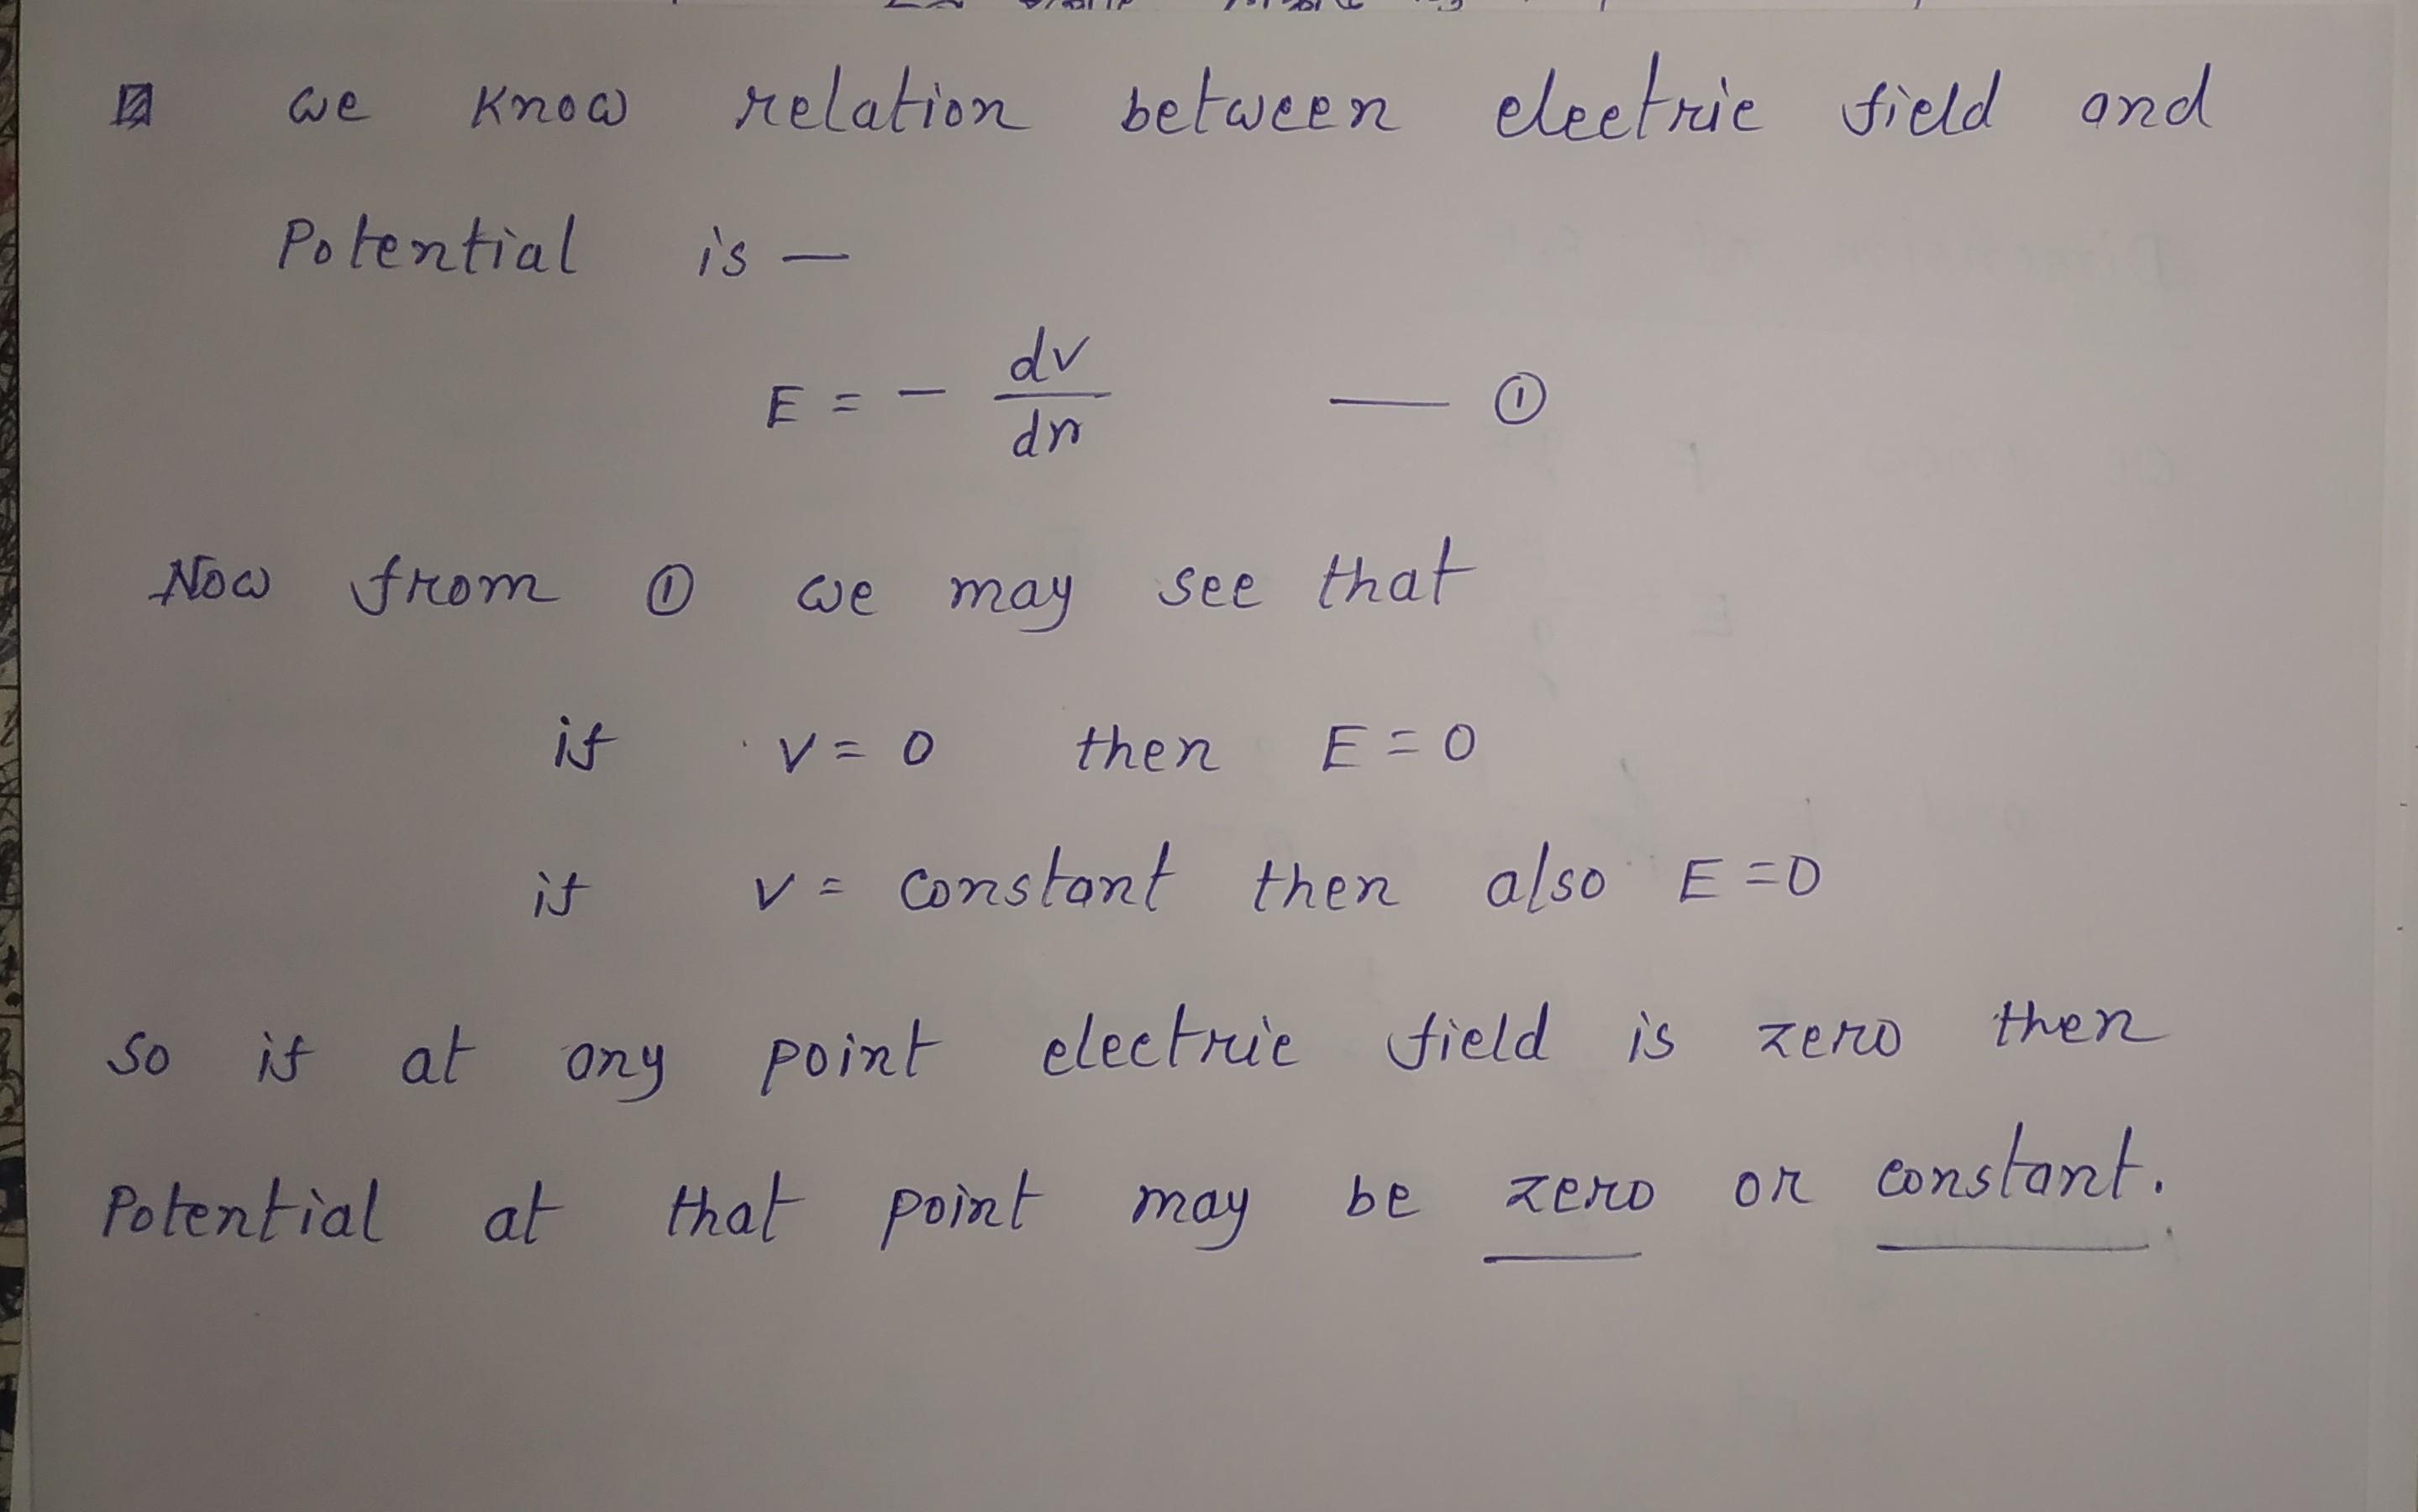 we know relation between electric field and
Potential is —
E = - dv/dr — ①
Now from ① we may see that
if v = 0 then E = 0
if v = constant then also E = 0
so if at any point electric field is zero then
Potential at that point may be zero or constant.